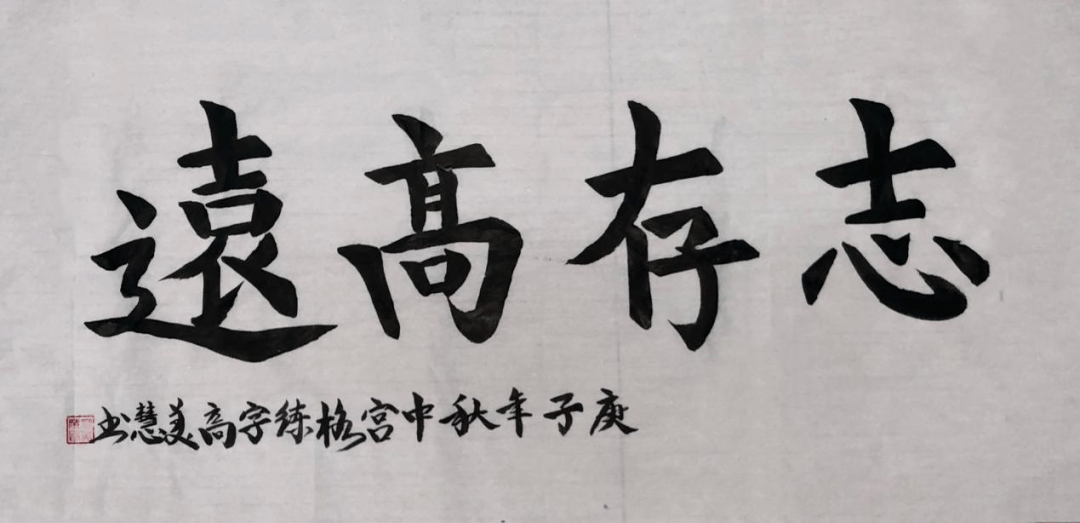 志存高遠
庚子年秋中宫格练字高美慧书